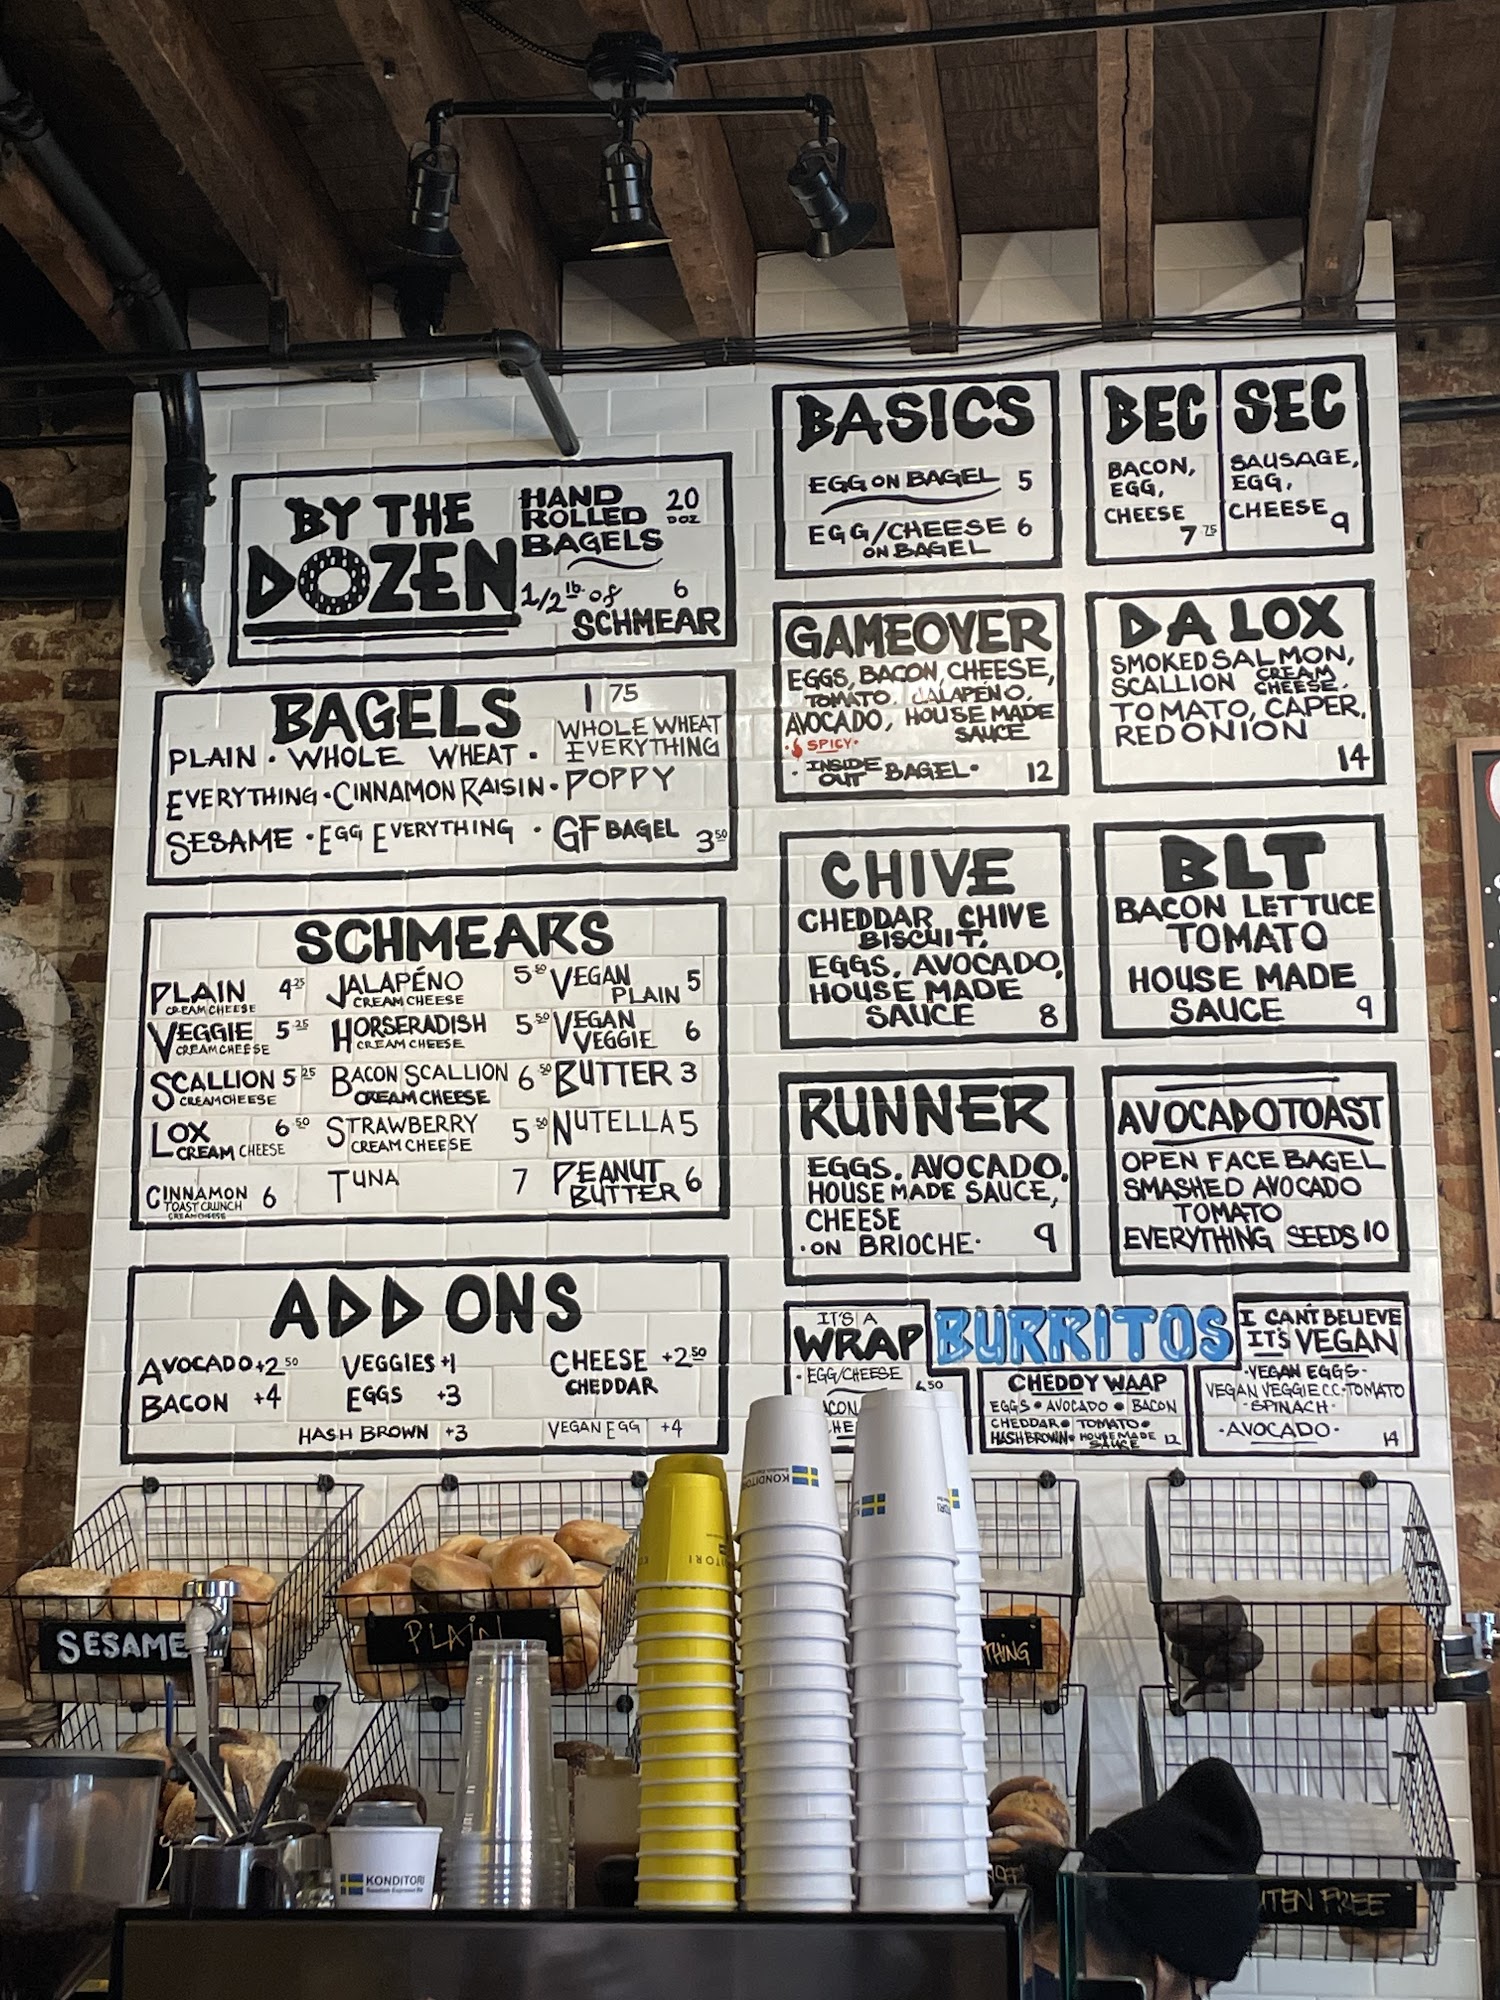 BY THE
DOZEN
HAND
ROLLED
BAGELS
20
DOZ
1/2 lb. of
SCHMEAR
6
BAGELS 1 75
PLAIN · WHOLE WHEAT · WHOLE WHEAT
EVERYTHING
EVERYTHING · CINNAMON RAISIN · POPPY
SESAME · EGG EVERYTHING · GF BAGEL 3 50
SCHMEARS
PLAIN 4 25
CREAM CHEESE
VEGGIE 5 25
CREAM CHEESE
SCALLION 5 25
CREAM CHEESE
LOX 6 50
CREAM CHEESE
CINNAMON 6
TOAST CRUNCH
CREAM CHEESE
JALAPÉNO 5 50
CREAM CHEESE
HORSERADISH 5 50
CREAM CHEESE
BACON SCALLION 6 50
CREAM CHEESE
STRAWBERRY 5 50
CREAM CHEESE
TUNA 7
VEGAN 5
PLAIN
VEGAN 6
VEGGIE
BUTTER 3
NUTELLA 5
PEANUT
BUTTER 6
ADD ONS
AVOCADO +2 50 VEGGIES +1 CHEESE +2 50
CHEDDAR
BACON +4 EGGS +3
HASH BROWN +3 VEGAN EGG +4
BASICS
EGG ON BAGEL 5
EGG/CHEESE 6
ON BAGEL
BEC
BACON,
EGG,
CHEESE
7 75
SEC
SAUSAGE,
EGG,
CHEESE
9
GAMEOVER
EGGS, BACON, CHEESE,
TOMATO, JALAPENO,
AVOCADO, HOUSE MADE
SAUCE
· SPICY ·
· INSIDE
OUT BAGEL · 12
DA LOX
SMOKED SALMON,
SCALLION CREAM
CHEESE,
TOMATO, CAPER,
RED ONION
14
CHIVE
CHEDDAR CHIVE
BISCUIT,
EGGS, AVOCADO,
HOUSE MADE
SAUCE 8
BLT
BACON LETTUCE
TOMATO
HOUSE MADE
SAUCE 9
RUNNER
EGGS, AVOCADO,
HOUSE MADE SAUCE,
CHEESE
· ON BRIOCHE · 9
AVOCADO TOAST
OPEN FACE BAGEL
SMASHED AVOCADO
TOMATO
EVERYTHING SEEDS 10
BURRITOS
IT'S A
WRAP
· EGG/CHEESE
6 50
CHEDDY WAAP
EGGS • AVOCADO • BACON
CHEDDAR • TOMATO •
HASHBROWN • HOUSE MADE
SAUCE 12
I CAN'T BELIEVE
IT'S VEGAN
· VEGAN EGGS ·
VEGAN VEGGIE C.C. · TOMATO
· SPINACH ·
· AVOCADO · 14
SESAME
PLAIN
KONDITORI
KONDITORI
KONDITORI
Swedish Espresso Bar
FREE